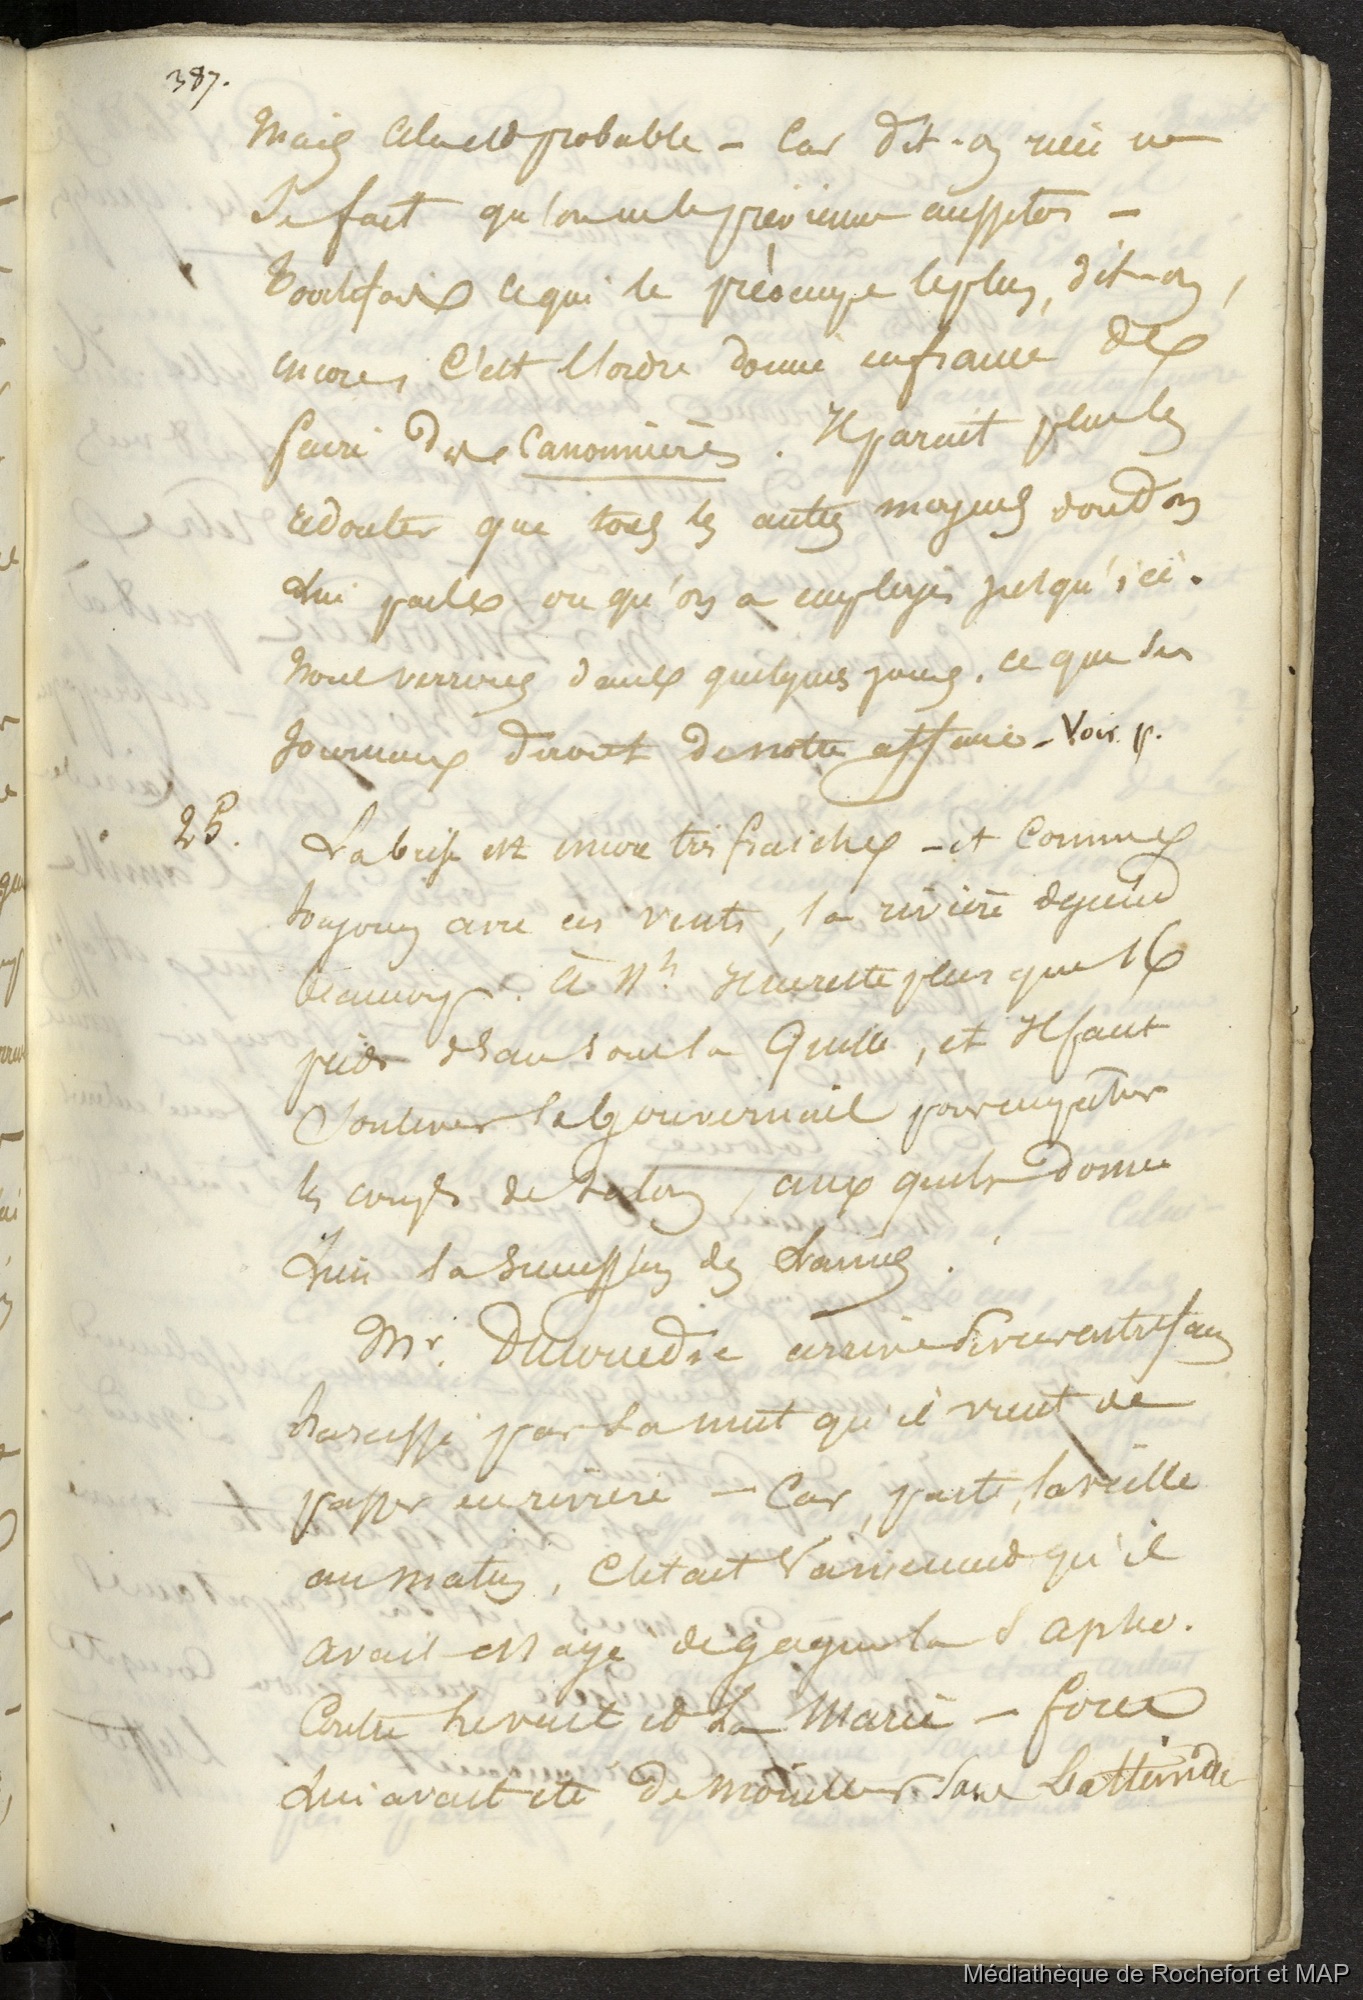 387.
Mais cela est probable - Car dit-on rien ne
se fait qu'on ne le prévienne aussitôt -
Toutefois ce qui le préocupe le plus, dit-on,
encore, c'est l'ordre donné en france de
faire des Canonnières. Il parait plus les
redouter que tous les autres moyens dont on
lui parle ou qu'on a employés jusqu'ici.
Nous verrons dans quelques jours. ce que les
Journaux diront de notre affaire - Voir p.
25. La brise est encore très fraiche - et comme
toujours avec ces vents, la rivière dégeule
beaucoup. à 11h. Il ne reste plus que 16
pieds d'eau sous la Quille, et Il faut
Soulever le gouvernail pour empêcher
les coups de talon aux quels donne
lieu la succession des lames.
Mr. Ducouedic arrive
harassé par la nuit qu'il vient de
passer en rivière - Car, parti, la veille
au matin, c'est vainement qu'il
avait essayé de gagner la Sapho.
Contre le vent et La Marée - force
lui avait été de mouiller Sans L'atteindre
Médiathèque de Rochefort et MAP